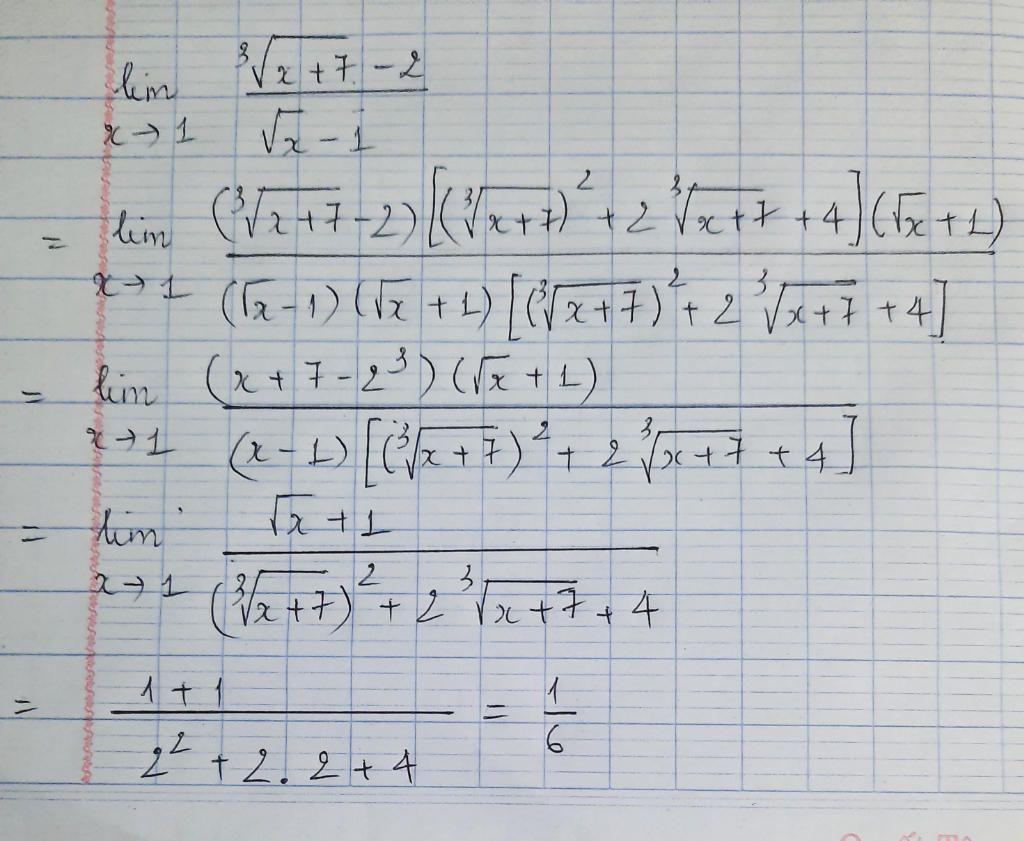 lim x→1 (∛(x+7) - 2) / (√x - 1)
= lim x→1 (∛(x+7) - 2)[(∛(x+7))² + 2∛(x+7) + 4](√x + 1) / (√x - 1)(√x + 1)[(∛(x+7))² + 2∛(x+7) + 4]
= lim x→1 (x + 7 - 2³)(√x + 1) / (x - 1)[(∛(x+7))² + 2∛(x+7) + 4]
= lim x→1 (√x + 1) / ((∛(x+7))² + 2∛(x+7) + 4)
= (1 + 1) / (2² + 2.2 + 4) = 1/6